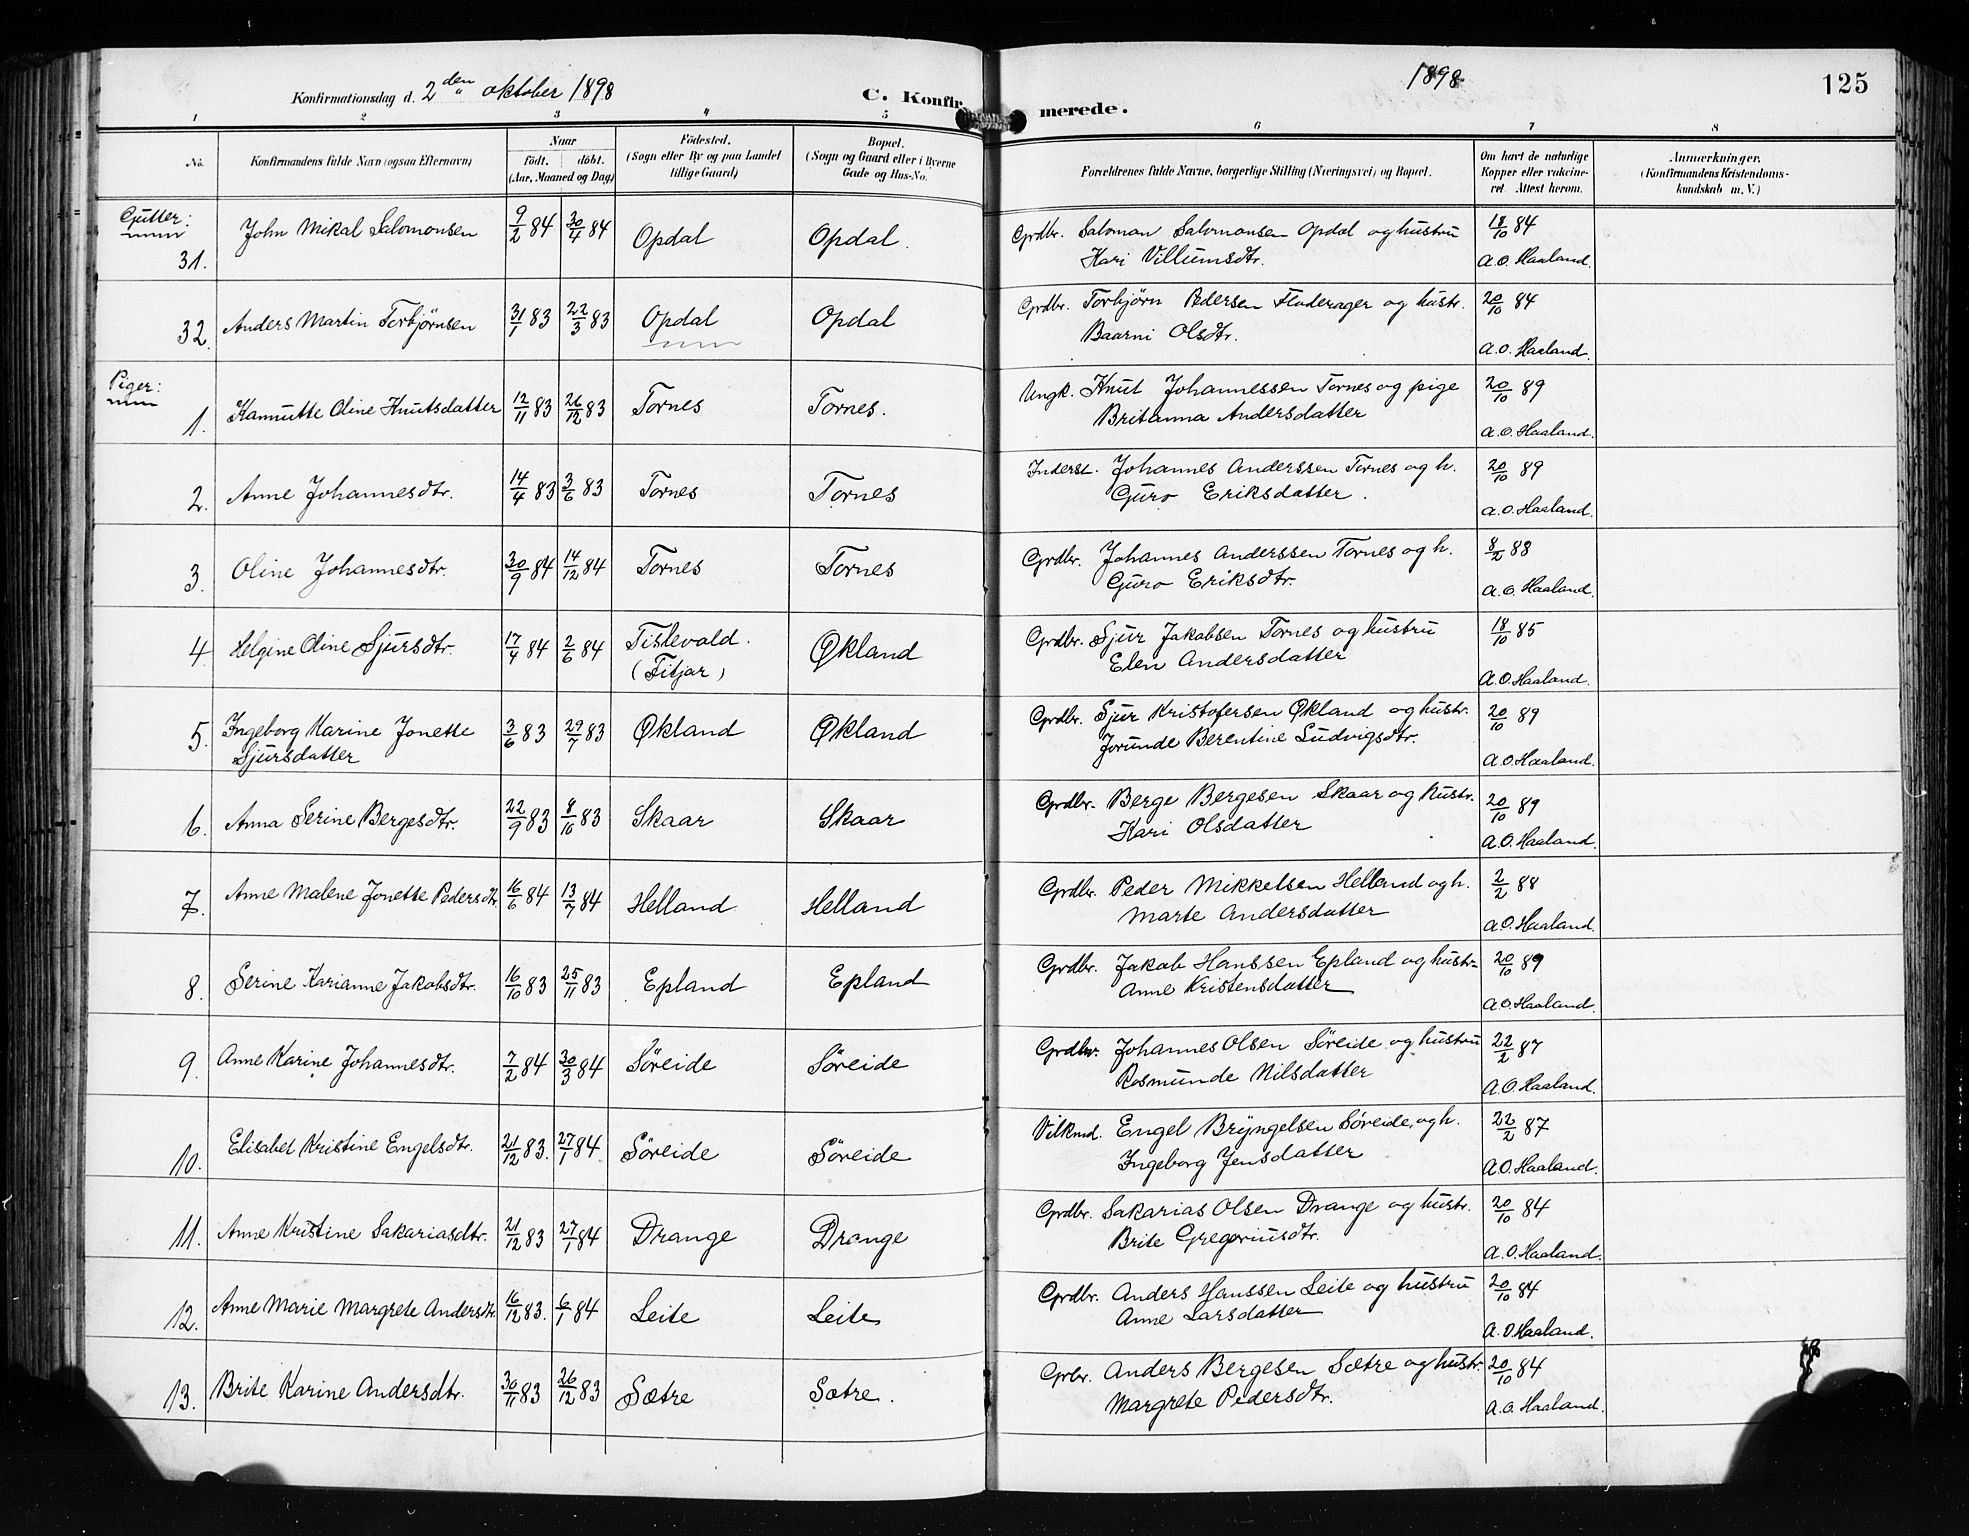 Konfirmationsdag d. 2den oktober 1898 C. Konfirmerede. 1898 125
1 2 3 4 5 6 7 8
No. Konfirmandens fulde Navn (ogsaa Efternavn) Naar födt. döbt. (Aar, Maaned og Dag) Födested. (Sogn eller By og paa Landet tillige Gaard) Bopæl. (Sogn og Gaard eller i Byerne Gade og Hus-No. Forældrenes fulde Navne, borgerlige Stilling (Næringsvei) og Bopæl. Om havt de naturlige Kopper eller vakcineret. Attest herom. Anmærkninger. (Konfirmandens Kristendomskundskab m. V.)
Gutter:
31. John Mikal Salomonsen 9/2 84 30/4 84 Opdal Opdal. Grdbr. Salomon Salomonsen Opdal og hustru 18/10 84
Kari Villumsdtr. A.O. Haaland.
32. Anders Martin Torbjørnsen 31/1 83 22/3 83 Opdal Opdal Grdbr. Torbjørn Pedersen Floderager og hustr. 20/10 84
Baarni Olsdtr. A.O. Haaland.
Piger:
1. Kanutte Oline Knutsdatter 12/11 83 26/12 83 Tornes Tornes. Ungk. Knut Johannessen Tornes og pige 20/10 89
Britanna Andersdatter A.O. Haaland.
2. Anne Johannesdtr. 14/4 83 3/6 83 Tornes Tornes Inderst. Johannes Anderssen Tornes og h. 20/10 89
Guro Eriksdatter. A.O. Haaland.
3. Oline Johannesdtr. 30/9 84 14/12 84 Tornes Tornes Grdbr. Johannes Anderssen Tornes og h. 8/2 88
Guro Eriksdtr. A.O. Haaland.
4. Helgine Oline Sjursdtr. 17/4 84 2/6 84 Tislevold. Økland Grdbr. Sjur Jakobsen Tornes og hustru 18/10 85
(Fitjar) Elen Andersdatter A.O. Haaland.
5. Ingeborg Karine Jonette 3/6 83 29/7 83 Økland Økland Grdbr. Sjur Kristofersen Økland og hustr. 20/10 89
Sjursdatter Jorunde Berentine Ludvigsdtr. A.O. Haaland.
6. Anna Serine Bergesdtr. 22/9 83 8/10 83 Skaar Skaar Grdbr. Berge Bergesen Skaar og hustr. 20/10 89
Kari Olsdatter A.O. Haaland.
7. Anne Malene Jonette Pedersdtr. 16/6 84 13/7 84 Helland Helland Grdbr. Peder Mikkelsen Helland og h. 2/2 88
Marte Andersdatter A.O. Haaland.
8. Serine Karianne Jakobsdtr. 16/10 83 25/11 83 Epland Epland Grdbr. Jakob Hanssen Epland og hustr. 20/10 89
Anne Kristensdatter A.O. Haaland.
9. Anne Karine Johannesdtr. 7/2 84 30/3 84 Söreide Söreide Grdbr. Johannes Olsen Söreide og hustru 22/2 87
Rosmunde Nilsdatter A.O. Haaland.
10. Elisabet Kristine Engelsdtr. 21/12 83. 27/1 84 Söreide Söreide Vilkmd. Engel Bryngelsen Söreide, og h. 22/2 87
Ingeborg Jensdatter A.O. Haaland.
11. Anne Kristine Sakariasdtr. 21/12 83 27/1 84 Drange Drange Grdbr. Sakarias Olsen Drange og hustr. 20/10 84
Brite Gregoriusdtr. A.O. Haaland.
12. Anne Marie Margrete Andersdtr. 16/12 83. 6/1 84 Leite Leite Grdbr. Anders Hanssen Leite og hustru 20/10 84
Anne Larsdatter A.O. Haaland.
13. Brite Karine Andersdtr. 30/11 83 26/12 83 Sætre Sætre. Grbr. Anders Bergesen Sætre og hustr. 20/10 84
Margrete Pedersdtr. A.O. Haaland.